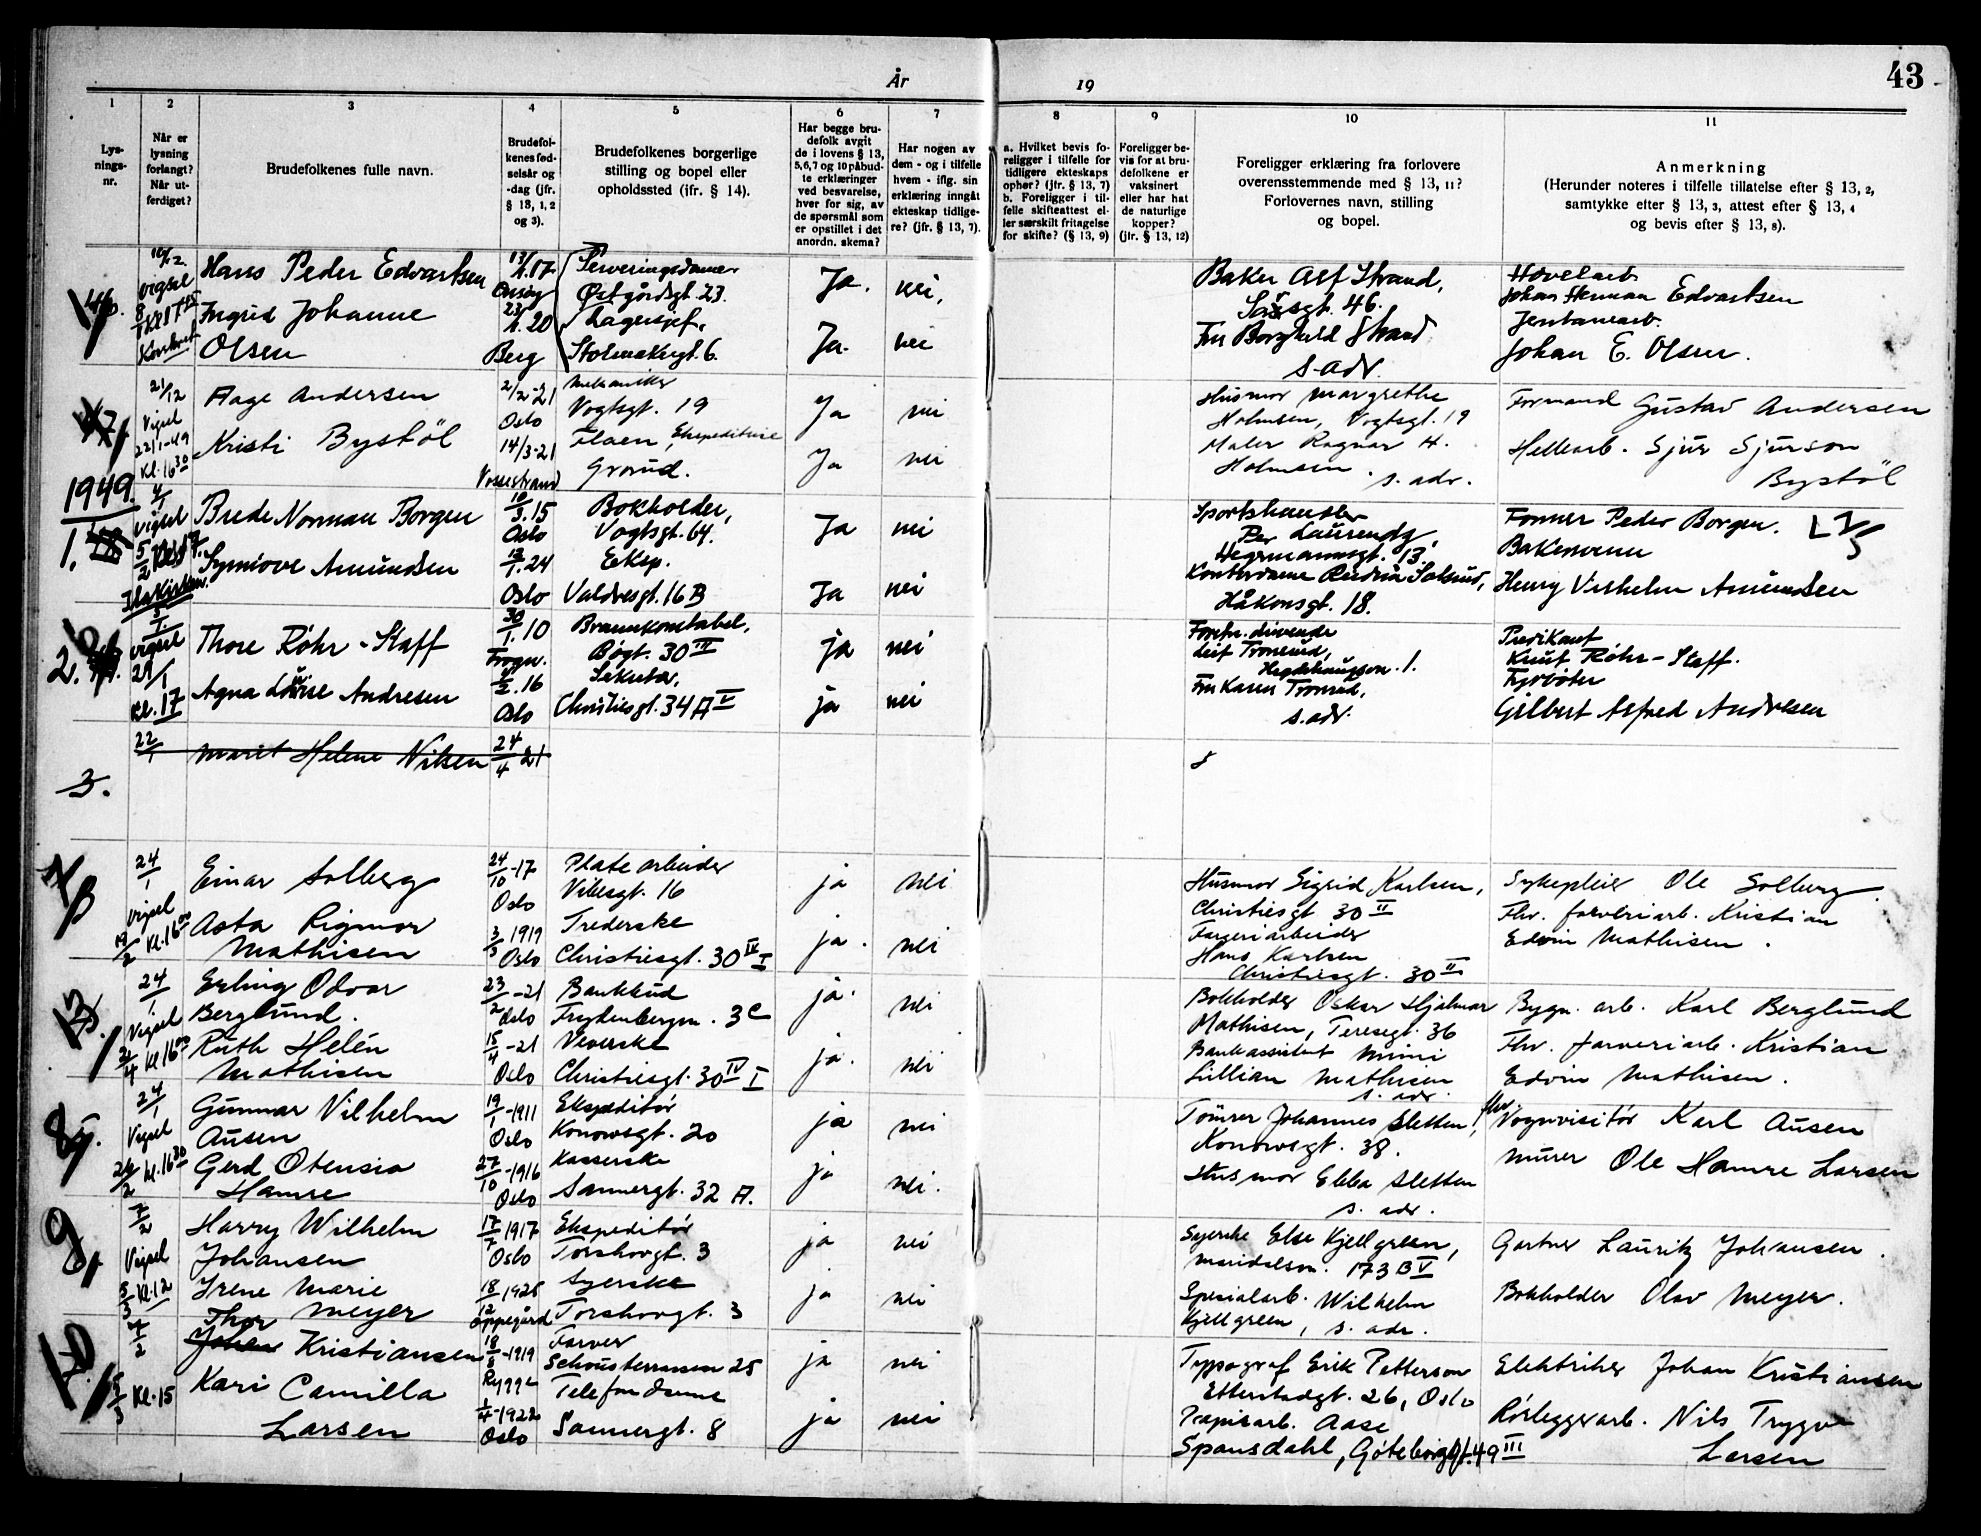 År
19
43
1
2
3
4
5
6
7
8
9
10
11
Lys-
nings-
nr.
Når er
lysning
forlangt?
Når ut-
ferdiget?
Brudefolkenes fulle navn.
Brudefol-
kenes fød-
selsår og
-dag (jfr.
§ 13, 1, 2
og 3).
Brudefolkenes borgerlige
stilling og bopel eller
opholdssted (jfr. § 14).
Har begge bru-
defolk avgit
de i lovens § 13,
5, 6, 7 og 10 påbud-
te erklæringer
ved besvarelse,
hver for sig, av
de spørsmål som
er opstillet i det
anordn. skema?
Har nogen av
dem - og i tilfelle
hvem - iflg. sin
erklæring inngåt
ekteskap tidlige-
re? (jfr. § 13, 7).
a. Hvilket bevis fo-
religger i tilfelle for
tidligere ekteskaps
ophør? (jfr. § 13, 7)
b. Foreligger i til-
felle skifteattest el-
ler særskilt fritagelse
for skifte? (§ 13, 9)
Foreligger be-
vis for at bru-
defolkene er
vaksinert
eller har hat
de naturlige
kopper?
(jfr. § 13, 12)
Foreligger erklæring fra forlovere
overensstemmende med § 13, 11?
Forlovernes navn, stilling
og bopel.
Anmerkning
(Herunder noteres i tilfelle tillatelse efter § 13, 2,
samtykke efter § 13, 3, attest efter § 13, 4
og bevis efter § 13, 8).
vigsel
Hans Peder Edvartsen
Ingrid Johanne
Olsen
13/1.17
Onsøy
23/1.20
Berg
Serveringsdame
Østgårdsgt. 23.
Lagersjef,
Stolmakergt. 6.
Ja.
nei.
Ja.
nei
Baker Alf Strand,
46.
Fru Borghild Strand
s. adr.
Høvelarb.
Johan Herman Edvartsen
Johan E. Olsen.
21/12
Vigsel
22/1-49
Kl. 16 30
Aage Andersen
Kristi Bystøl
2/2-21
Oslo
14/3-21
Vossestrand
Mekaniker
Vogtsgt. 19
Flaen, Ekspeditrise
Grorud.
Ja
nei
Ja
nei
Husmor Margrethe
Holmsen, Vogtsgt. 19
Maler Ragnar H.
Holmsen. s. adr.
Formand Gustav Andersen
Hellearb. Sjur Sjurson
Bystöl
1949.
1.
4/1
vigsel
5/2 Kl. 17.
Ilakirken.
Brede Norman Borgen
Synnöve Amundsen
10/3.15
Oslo
13/1.24
Oslo
Bokholder,
Vogtsgt. 64.
Eksp.
Valdresgt. 16 B
Ja
nei
Ja
nei
Sportshandler
Per Laurendz,
Hegermannsgt. 13.
Håkonsgt. 18.
Former Peder Borgen.
Bakersvenn
Henry Vilhelm Amundsen
2.
5/1.
vigsel
29/1
kl. 17
Thore Röhr-Staff
Agna Lovise Andresen
30/1.10
Frogn.
.16
Oslo
Brannkonstabel,
Bogt. 30 IV
Sekretær,
Christiesgt. 34 A V
ja
nei
ja
nei
Forr.drivende
Leif Tronrud,
Hegdehaugsvn. 1.
Fru Karen Tronrud,
s. adr.
Predikant
Knut Röhr-Staff.
Fyrbøter
Gilbert Alfred Andresen
3.
22/1
Marit Helene Nilsen
24/4 21
24/1
vigsel
19/2 Kl. 16 00
Einar Solberg
Asta Rigmor
Mathisen
24/10-17
Oslo
3/3 1919
Oslo
Platearbeider
Vibesgt. 16
Trederske
Christiesgt. 30 IV I
ja
nei
ja.
nei
Husmor Sigrid Karlsen,
Christiesgt 30 II
Fargeriarbeider
Hans Karlsen
Christiesgt. 30 II
Sykepleier Ole Solberg.
Fhv. farveriarb. Kristian
Edvin Mathisen.
24/1
Vigsel
2/4 Kl. 16 00
Erling Odvar
Berglund.
Ruth Helén
Mathisen
23/2-21
Oslo
15/4-21
Oslo
Bankbud
Frydenbergvn. 3 C
Veverske
Christiesgt. 30 IV I
ja.
nei
ja.
nei
Bokholder Oskar Hjalmar
Mathisen, Teresegt. 36
Bankassistent Mimi
Lillian Mathisen
s. adr.
Bygn. arb. Karl Berglund
Fhv. farveriarb. Kristian
Edvin Mathisen.
8.
24/1
Vigsel
26/2 Kl. 16 30
Gunnar Vilhelm
Ausen
Gerd Otensia
Hamre
19/1-1911
Oslo
27/10-1916
Oslo
Ekspeditör
Konowsgt. 20
Kasserske
Sannergt. 32 A.
ja
nei
ja
nei.
Tömrer Johannes Sletten,
Konowsgt. 38.
Husmor Ebba Sletten
s. adr.
fhv. Vognvisitör Karl Ausen
Murer Ole Hamre Larsen
9.
7/2
Vigsel
5/3 Kl. 12
Harry Wilhelm
Johansen
Irene Marie
Meyer
17/7 1917
Oslo
18/12 1925
Oppegård
Ekspeditör
Torshovgt. 3
Syerske
Torshovgt. 3
ja
nei
ja
nei
Syerske Else Kjellgreen,
Maridalsvn. 173 B V
Spesialarb. Wilhelm
Kjellgreen, s. adr.
Gartner Lauritz Johansen.
Bokholder Olav Meyer.
10
7/2
5/3 Kl. 15
Thor
Johan Kristiansen
Kari Camilla
Larsen
18/8-1919
Rygge
1/4-1922
Oslo
Farver
Schousterrassen 25
Telefondame
Sannergt. 8
ja
nei
ja
nei
Typograf Erik Petterson
Etterstadgt. 26, Oslo
Papirarb. Aase
Spansdahl, Göteborggt. 49 III
Elektriker Johan Kristiansen
Rörleggerarb. Nils Trygve
Larsen